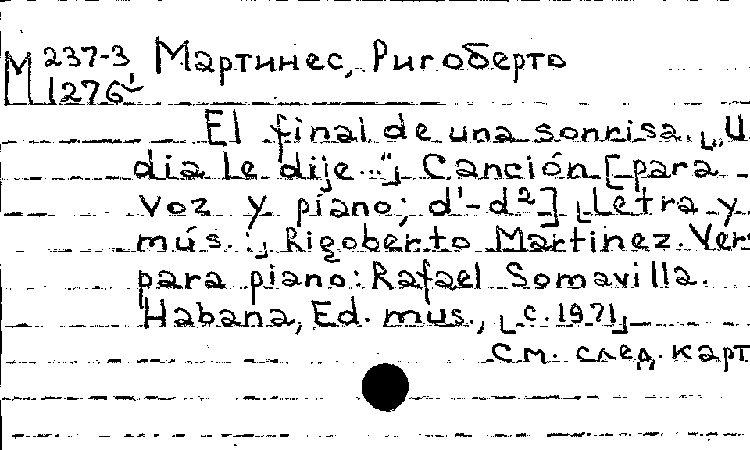 М 237-3 Мартинес, Ригоберто
1276
El final de una sonrisa. ⌊„U
dia le dije..."⌋ Canción [para
voz y piano; d¹-d²] ⌊Letra y
mús.:⌋ Rigoberto Martinez. Vers
para piano: Rafael Somavilla.
Habana, Ed. mus., ⌊c. 1971⌋
См. след. карт